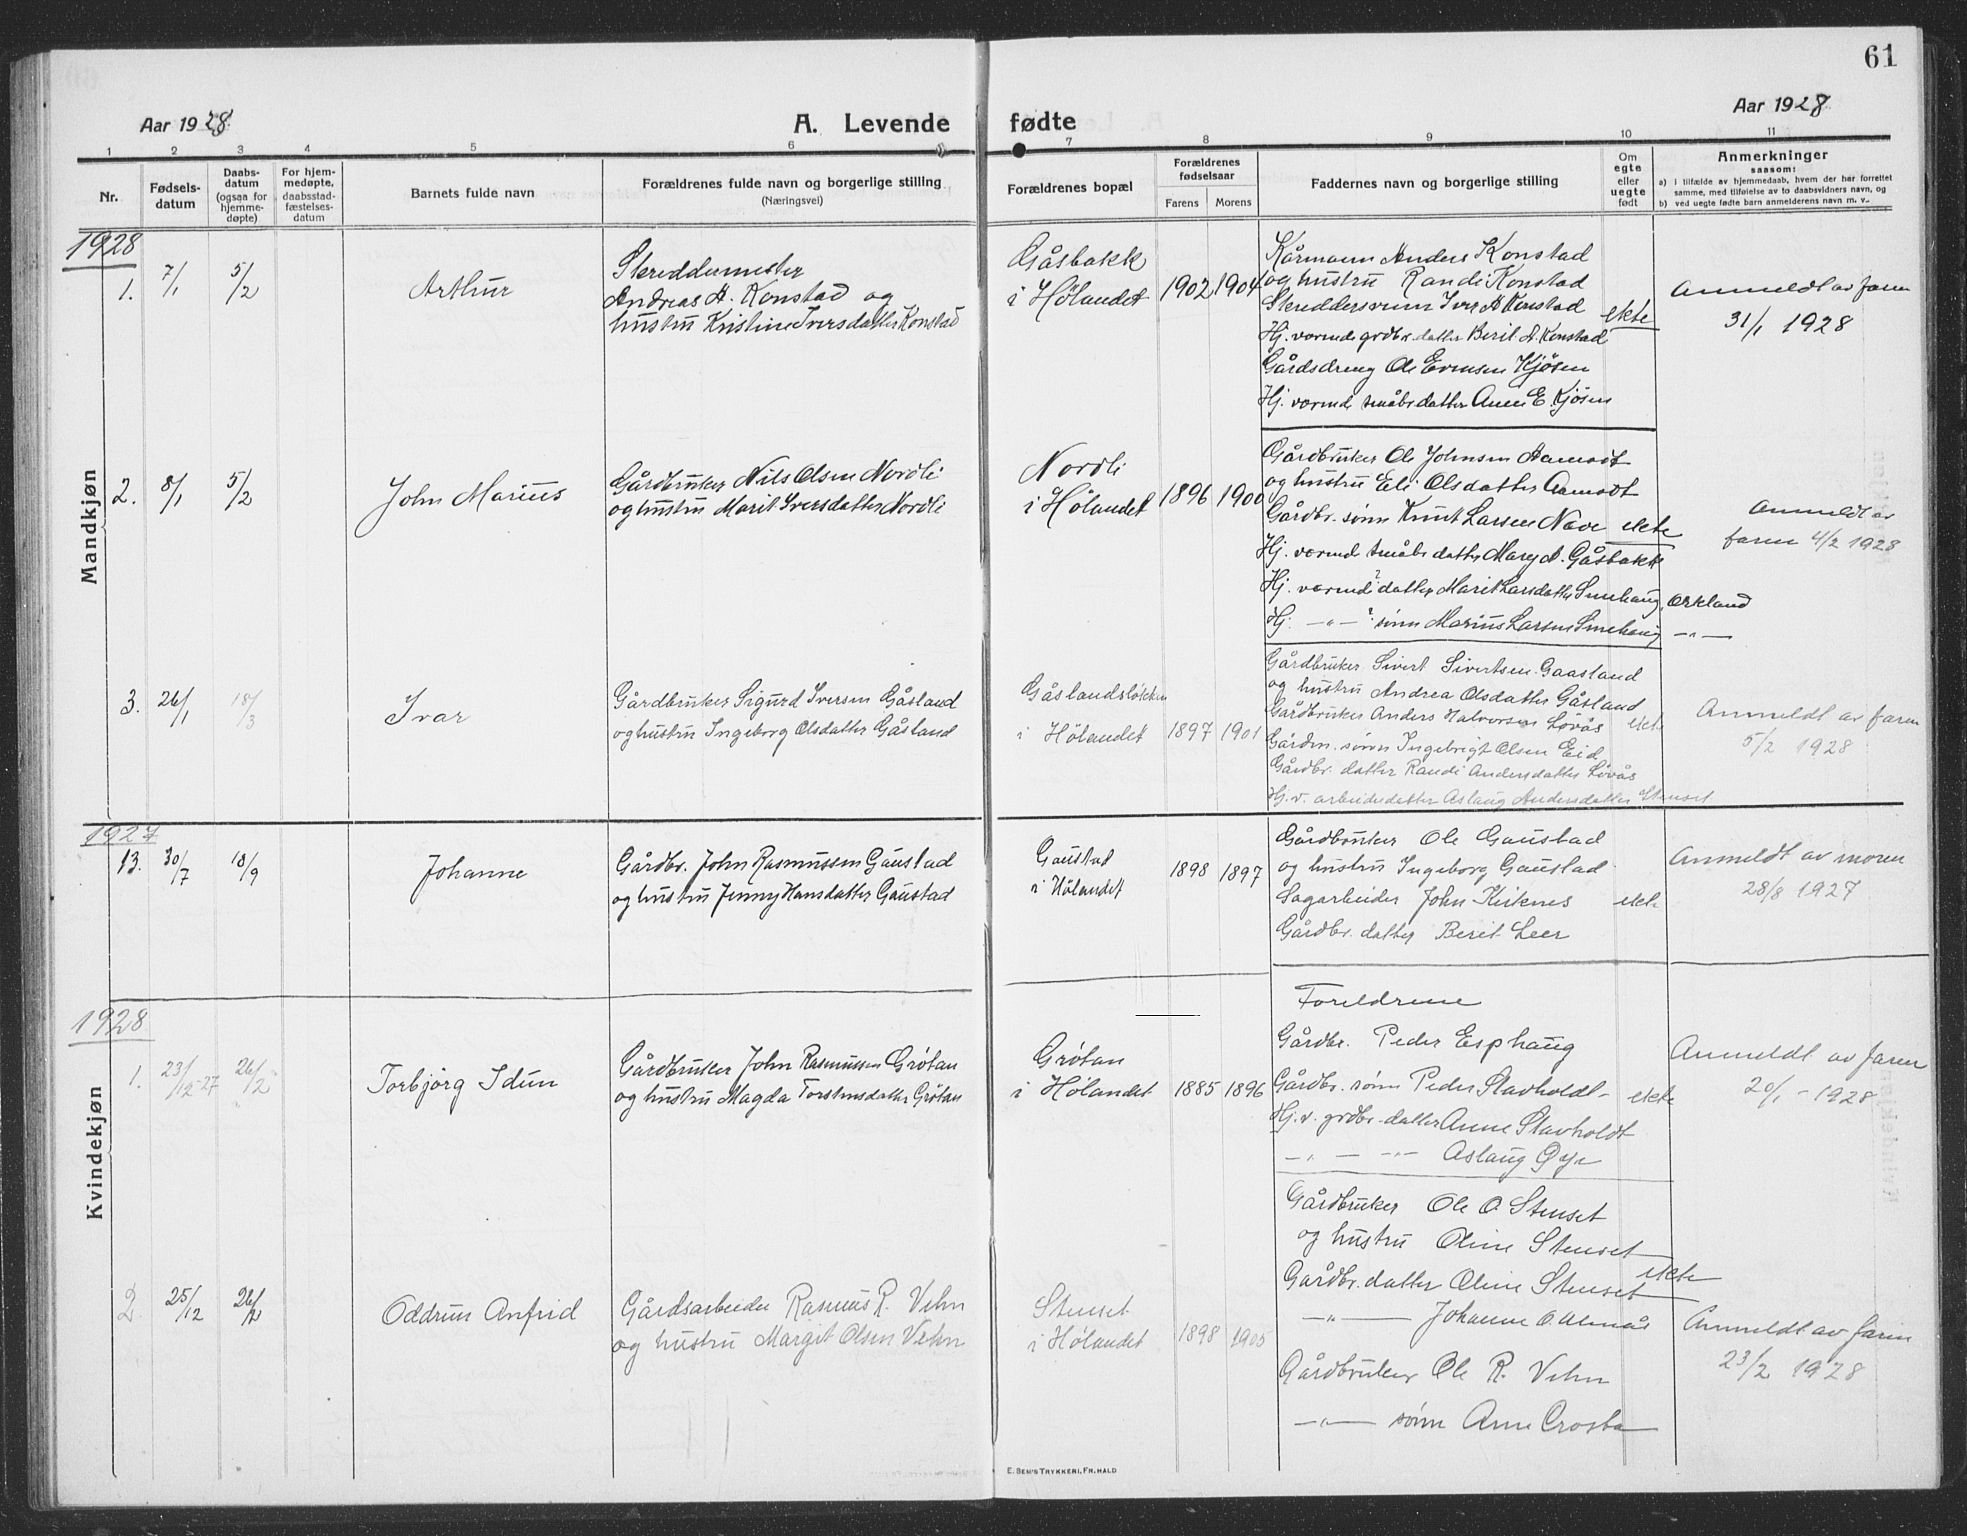 61
Aar 1928
A. Levende fødte
Aar 1928
1 2 3 4 5 6 7 8 9 10 11
Nr.
Fødsels-
datum
Daabs-
datum
(ogsaa for
hjemme-
døpte)
For hjem-
medøpte,
daabsstad-
fæstelses-
datum
Barnets fulde navn
Forældrenes fulde navn og borgerlige stilling
(Næringsvei)
Forældrenes bopæl
Forældrenes
fødselsaar
Farens Morens
Faddernes navn og borgerlige stilling
Om
egte
eller
uegte
født
Anmerkninger
saasom:
a) i tilfælde av hjemmedaab, hvem der har forrettet
samme, med tilføielse av to daabsvidners navn, og
b) ved uegte fødte barn anmelderens navn m. v.
Mandkjøn
1928
1. 7/1 5/2 Arthur
Skreddermester
Andreas A. Konstad og
hustru Kristine Iversdatter Konstad
Gåsbakk
i Hølandet
1902 1904
Kårmann Anders Konstad
og hustru Randi Konstad
Skreddersvenn Iver A Konstad
Hj. værende grdbr. datter Berit A. Konstad
Gårdsdreng Ole Evensen Kjøsen
Hj. værend. småbr. datter Anne E. Kjøsen
ekte
Anmeldt av faren
31/1 1928
2. 8/1 5/2 John Marius
Gårdbruker Nils Olsen Nordli
og hustru Marit Iversdatter Nordli
Nordli
i Hølandet
1896 1900
Gårdbruker Ole Johnsen Aamodt
og hustru Eli Olsdatter Aamodt
Gårdbr. sønn Knut Larsen Nave
Hj. værend småbr. datter Mary A. Gåsbakk
Hj. værend ? datter Marit Larsdatter Smehaug, Orkland
Hj. —"— ? sønn Marius Larsen Smehaug —"—
ekte
Anmeldt av
faren 4/2 1928
3. 26/1 18/3 Ivar
Gårdbruker Sigurd Iversen Gåsland
og hustru Ingeborg Olsdatter Gåsland
Gåslandsløkken
i Hølandet
1897 1901
Gårdbruker Sivert Sivertsen Gaasland
og hustru Andrea Olsdatter Gåsland
Gårdbruker Anders Halvorsen Løvås
Gårdm. sønn Ingebrigt Olsen Eid
Gårdbr. datter Randi Andersdatter Løvås
Hj. v. arbeiderdatter Aslaug Andersdatter Stenset
ekte
Anmeldt av faren
5/2 1928
Kvindekjøn
1927
13. 30/7 18/9 Johanne
Gårdbr. John Rasmussen Gaustad
og hustru Jenny Hansdatter Gaustad
Gaustad
i Hølandet
1898 1897
Gårdbruker Ole Gaustad
og hustru Ingeborg Gaustad
Sagarbeider John Kirknes
Gårdbr. datter Berit Leer
ekte
Anmeldt av moren
28/8 1927
1928
1. 23/12-27 26/2 Torbjørg Idun
Gårdbruker John Rasmussen Grøtan
og hustru Magda Torstensdatter Grøtan
Grøtan
i Hølandet
1885 1896
Foreldrene
Gårdbr. Peder Esphaug
Gårdbr. sønn Peder Stavholdt
Hj. v. grdbr. datter Anne Stavholdt
—"— —"— Aslaug Øye
ekte
Anmeldt av faren
20/1 - 1928
2 25/12 26/2 Oddrun Anfrid
Gårdsarbeider Rasmus R. Vehn
og hustru Margit Olsen Vehn
Stenset
i Hølandet
1898 1905
Gårdbruker Ole O. Stenset
og hustru Oline Stenset
Gårdbr. datter Oline Stenset
—"— Johanne O. Almås
Gårdbruker Ole R. Vehn
—"— sønn Arne Krosba
ekte
Anmeldt av faren
23/2 1928
E. Sem's Trykkeri, Fr.hald